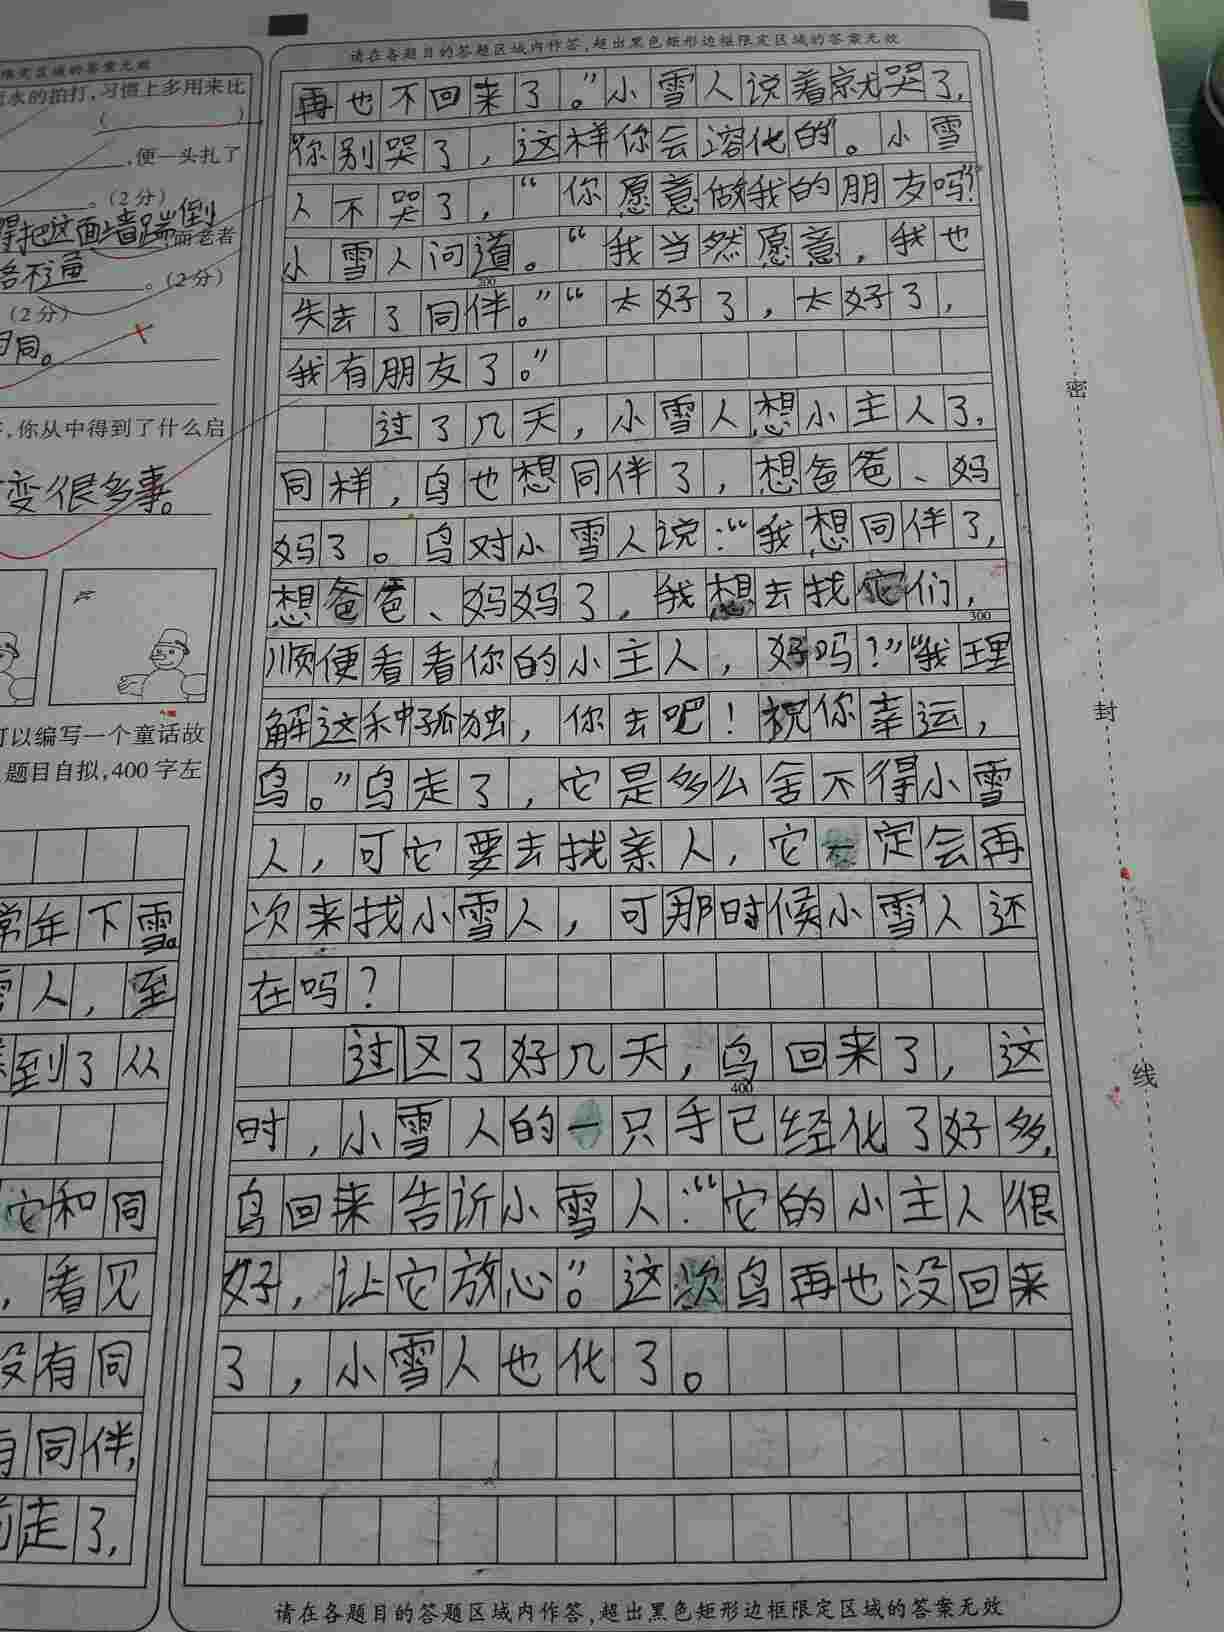 限定区域的答案无效
水的拍打,习惯上多用来比
( )
,便一头扎了
。(2分)
得把这面墙踹倒
而老者
路不通 。(2分)
(2分)
同。
,你从中得到了什么启
变很多事。
可以编写一个童话故
题目自拟,400字左
常年下雪。
雪人，至
到了从
它和同
，看见
没有同
有同伴，
走了，
请在各题目的答题区域内作答,超出黑色矩形边框限定区域的答案无效
再也不回来了。”小雪人说着就哭了，
“你别哭了，这样你会溶化的”。小雪
人不哭了，“你愿意做我的朋友吗？”
小雪人问道。“我当然愿意，我也
200
失去了同伴。”“太好了，太好了，
我有朋友了。”
过了几天，小雪人想小主人了，
同样，鸟也想同伴了，想爸爸、妈
妈了。鸟对小雪人说：“我想同伴了，
想爸爸、妈妈了，我想去找它们，
300
顺便看看你的小主人，好吗？”“我理
解这种孤独，你去吧！祝你幸运，
鸟。”鸟走了，它是多么舍不得小雪
人，可它要去找亲人，它一定会再
次来找小雪人，可那时候小雪人还
在吗？
过又了好几天，鸟回来了，这
400
时，小雪人的一只手已经化了好多，
鸟回来告诉小雪人：“它的小主人很
好，让它放心”。这次鸟再也没回来
了，小雪人也化了。
请在各题目的答题区域内作答,超出黑色矩形边框限定区域的答案无效
密
封
线